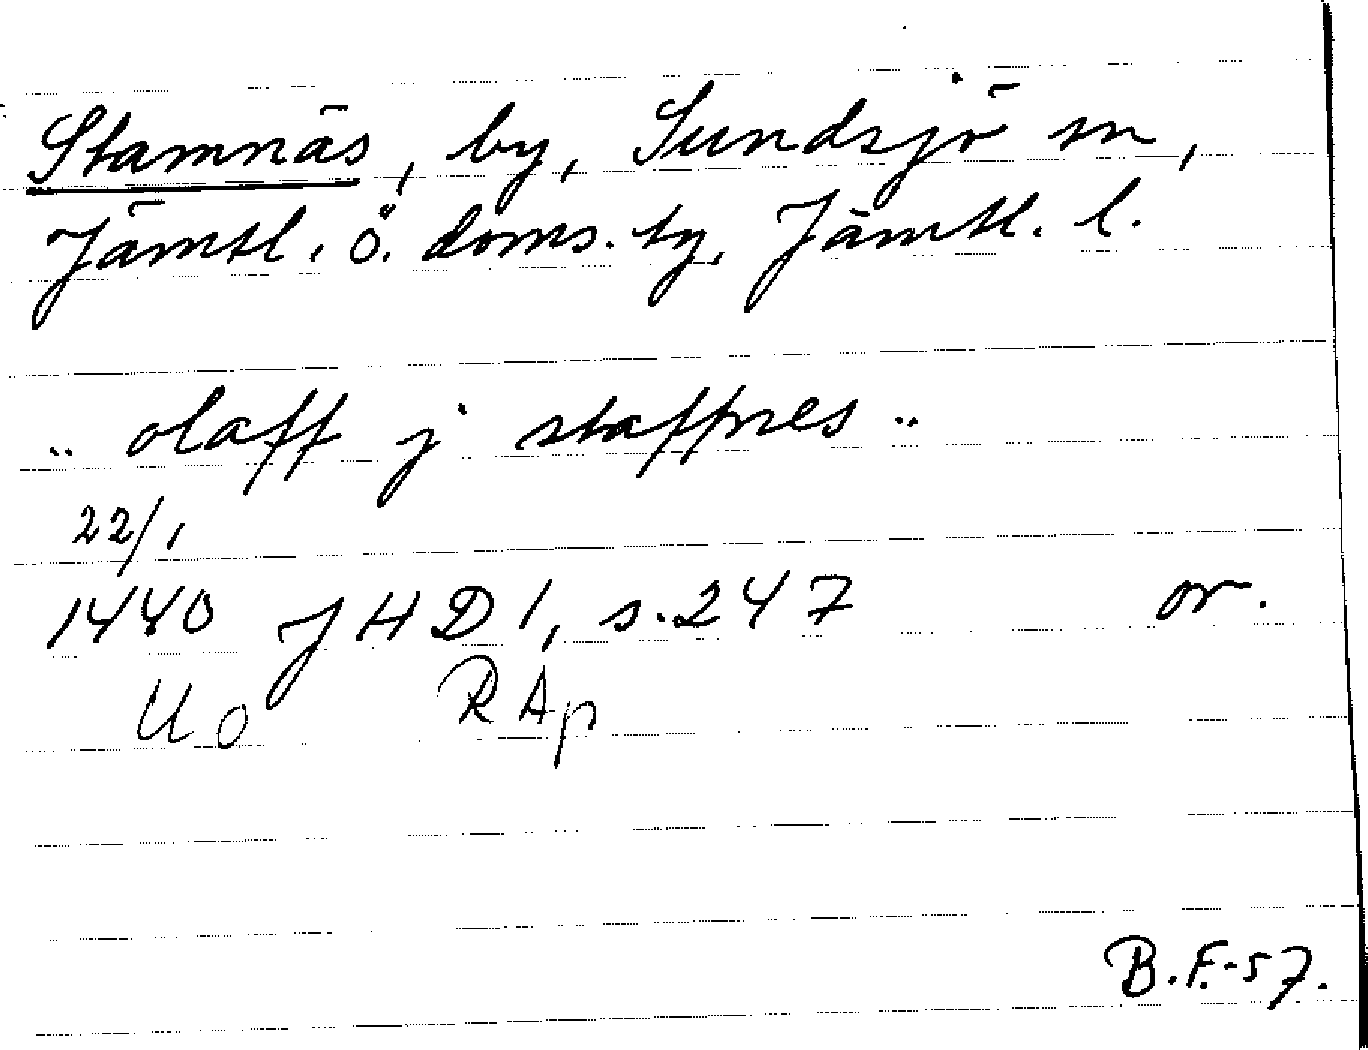 Stamnäs, by, Sundsjö sn,
Jämtl. ö. doms. by, Jämtl. l.
.. olaff j staffnes ..
22/1
1440 JHD 1, s. 247 or.
Uo RAp
B.F.-57.